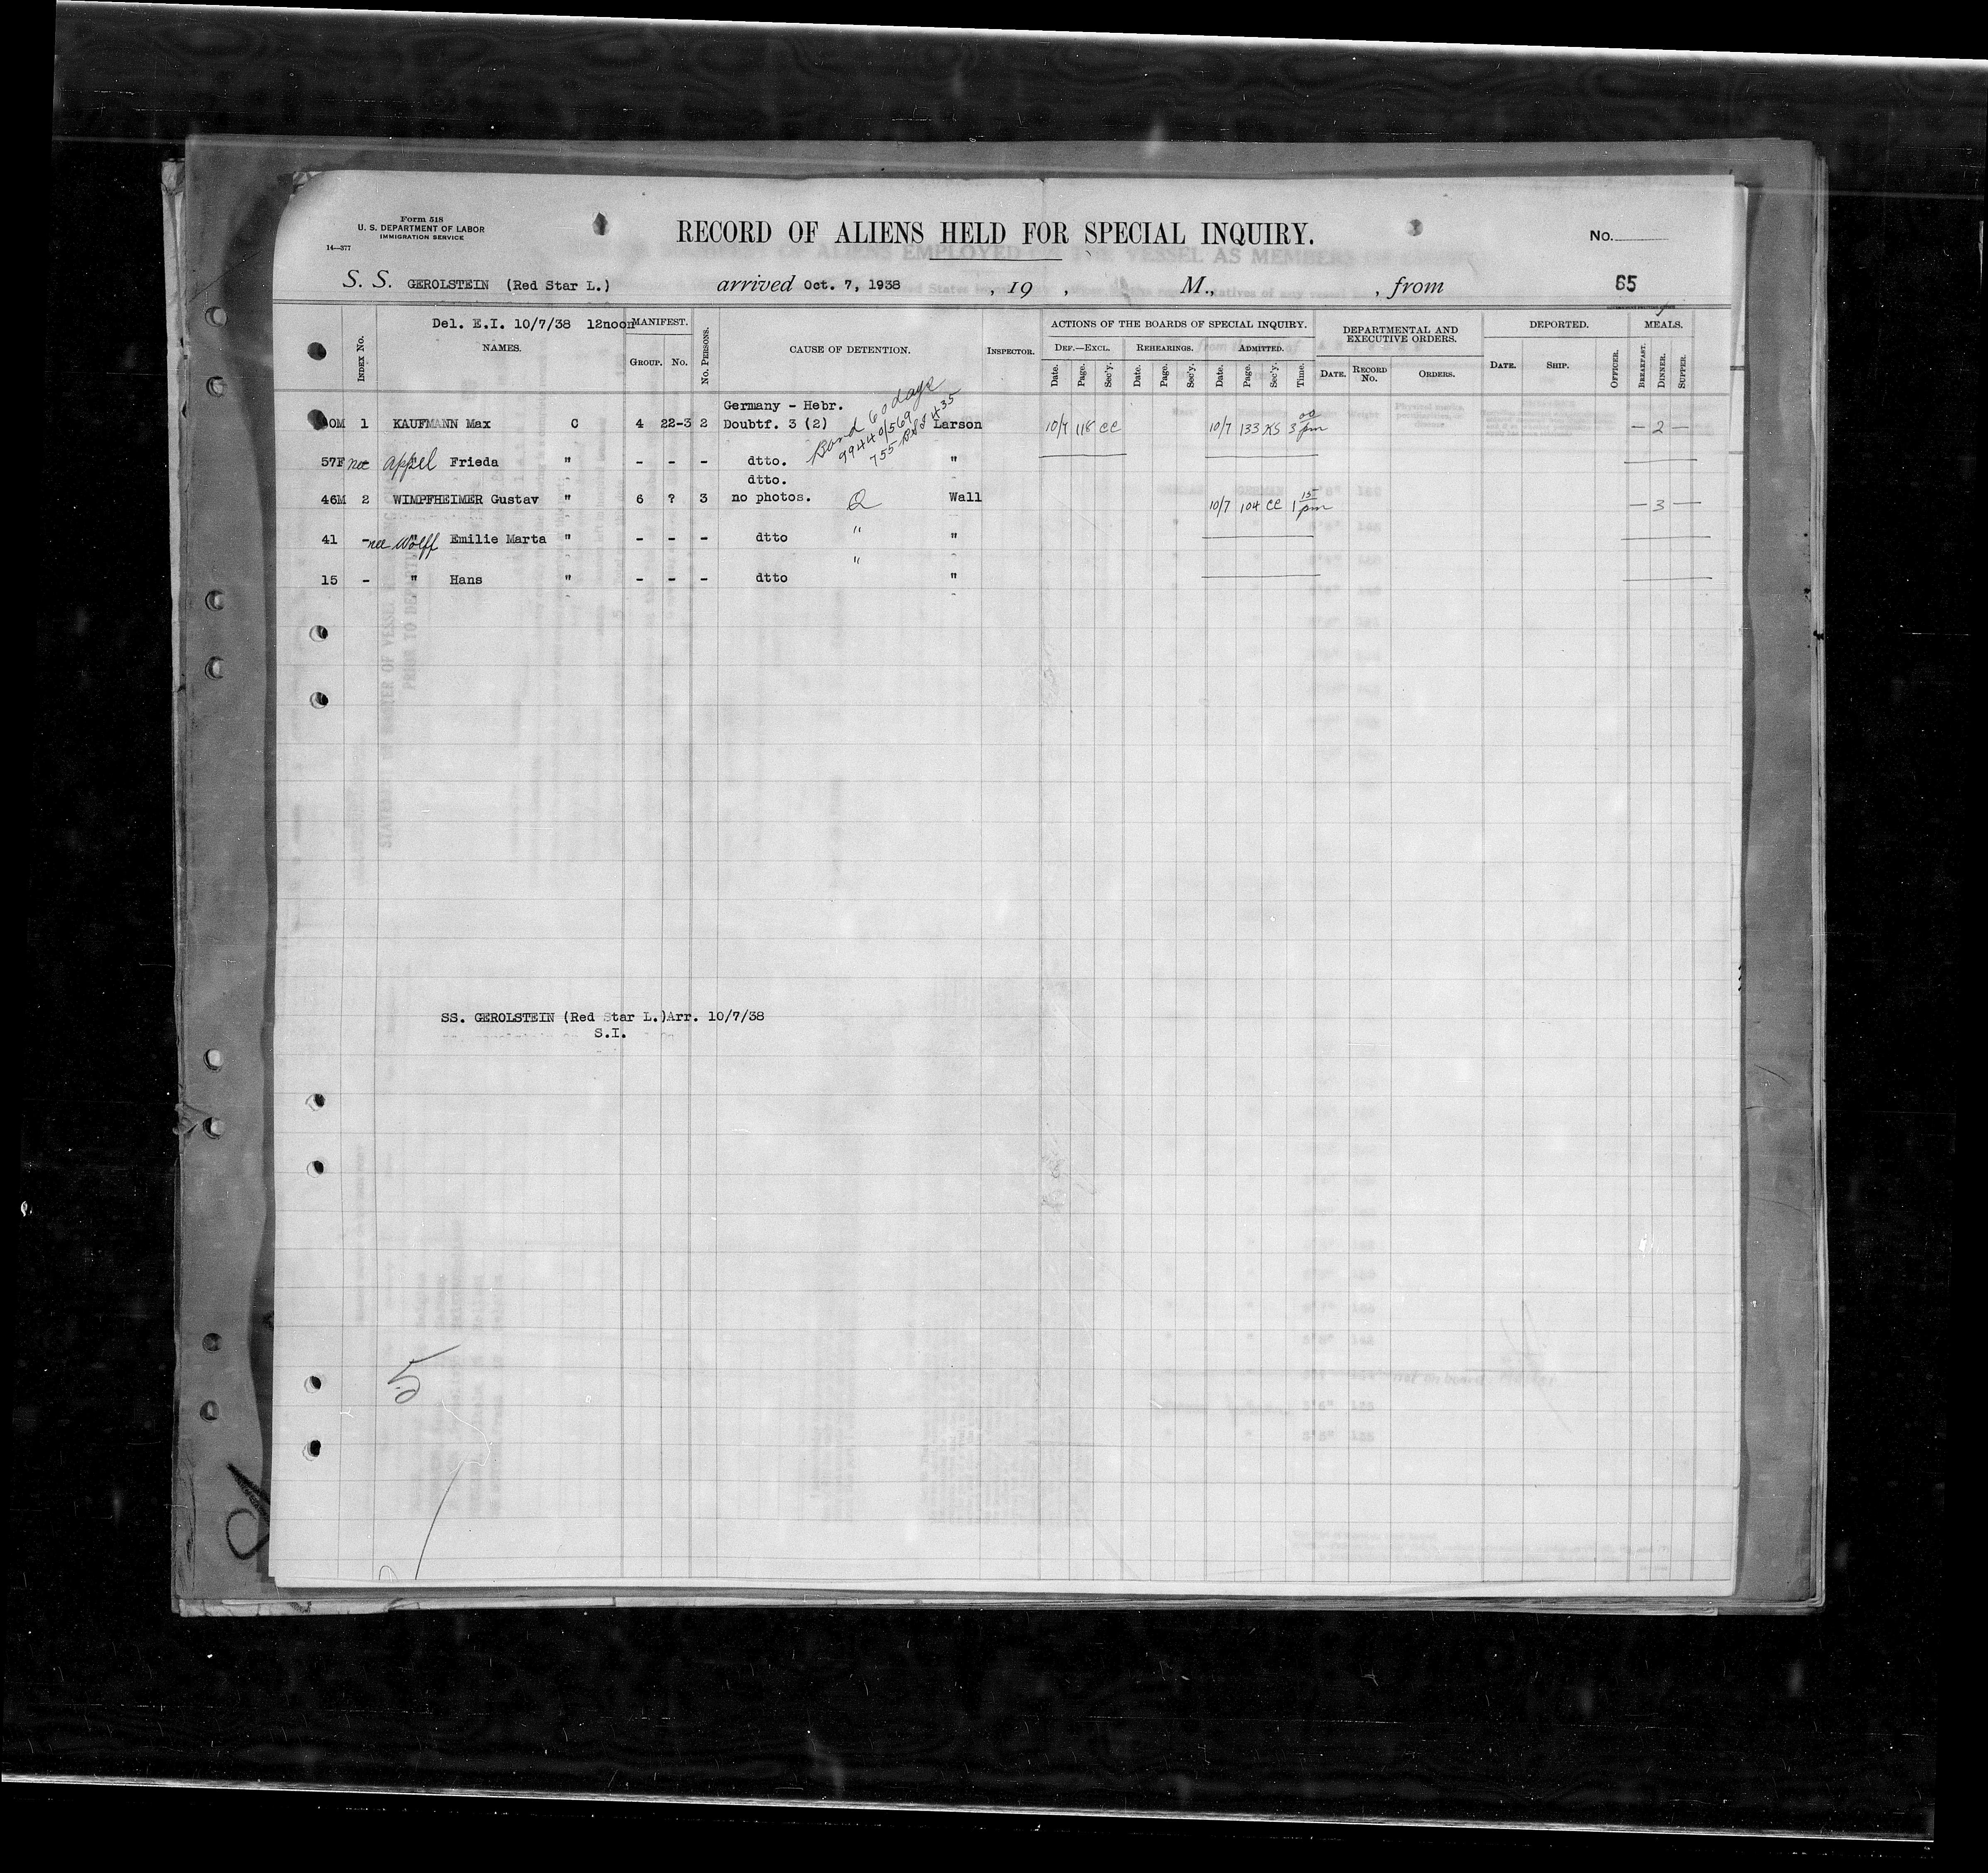 Form 518
U. S. DEPARTMENT OF LABOR
IMMIGRATION SERVICE
14—377
RECORD OF ALIENS HELD FOR SPECIAL INQUIRY.
No.
S. S. GEROLSTEIN (Red Star L.) arrived Oct. 7, 1938 , 19 , M., , from 65
Del. E.I. 10/7/38 12noon
INDEX No. NAMES. MANIFEST. GROUP. No. No. PERSONS. CAUSE OF DETENTION. INSPECTOR.
ACTIONS OF THE BOARDS OF SPECIAL INQUIRY.
DEF.—EXCL. REHEARINGS. ADMITTED.
Date. Page. Sec'y. Date. Page. Sec'y. Date. Page. Sec'y. Time.
DEPARTMENTAL AND EXECUTIVE ORDERS.
DATE. RECORD No. ORDERS.
DEPORTED.
DATE. SHIP. OFFICER.
MEALS.
BREAKFAST. DINNER. SUPPER.
Germany - Hebr.
0M 1 KAUFMANN Max C 4 22-3 2 Doubtf. 3 (2) Larson 10/7 118 CC 10/7 133 KS 3 00 pm — 2 —
Bond 60 days
57F nee Appel Frieda " - - - dtto. "
dtto.
46M 2 WIMPFHEIMER Gustav " 6 ? 3 no photos. Q Wall 10/7 104 CC 1 15 pm — 3 —
41 - nee Wolff Emilie Marta " - - - dtto " "
15 - " Hans " - - - dtto " "
SS. GEROLSTEIN (Red Star L.)Arr. 10/7/38
S.I.
5